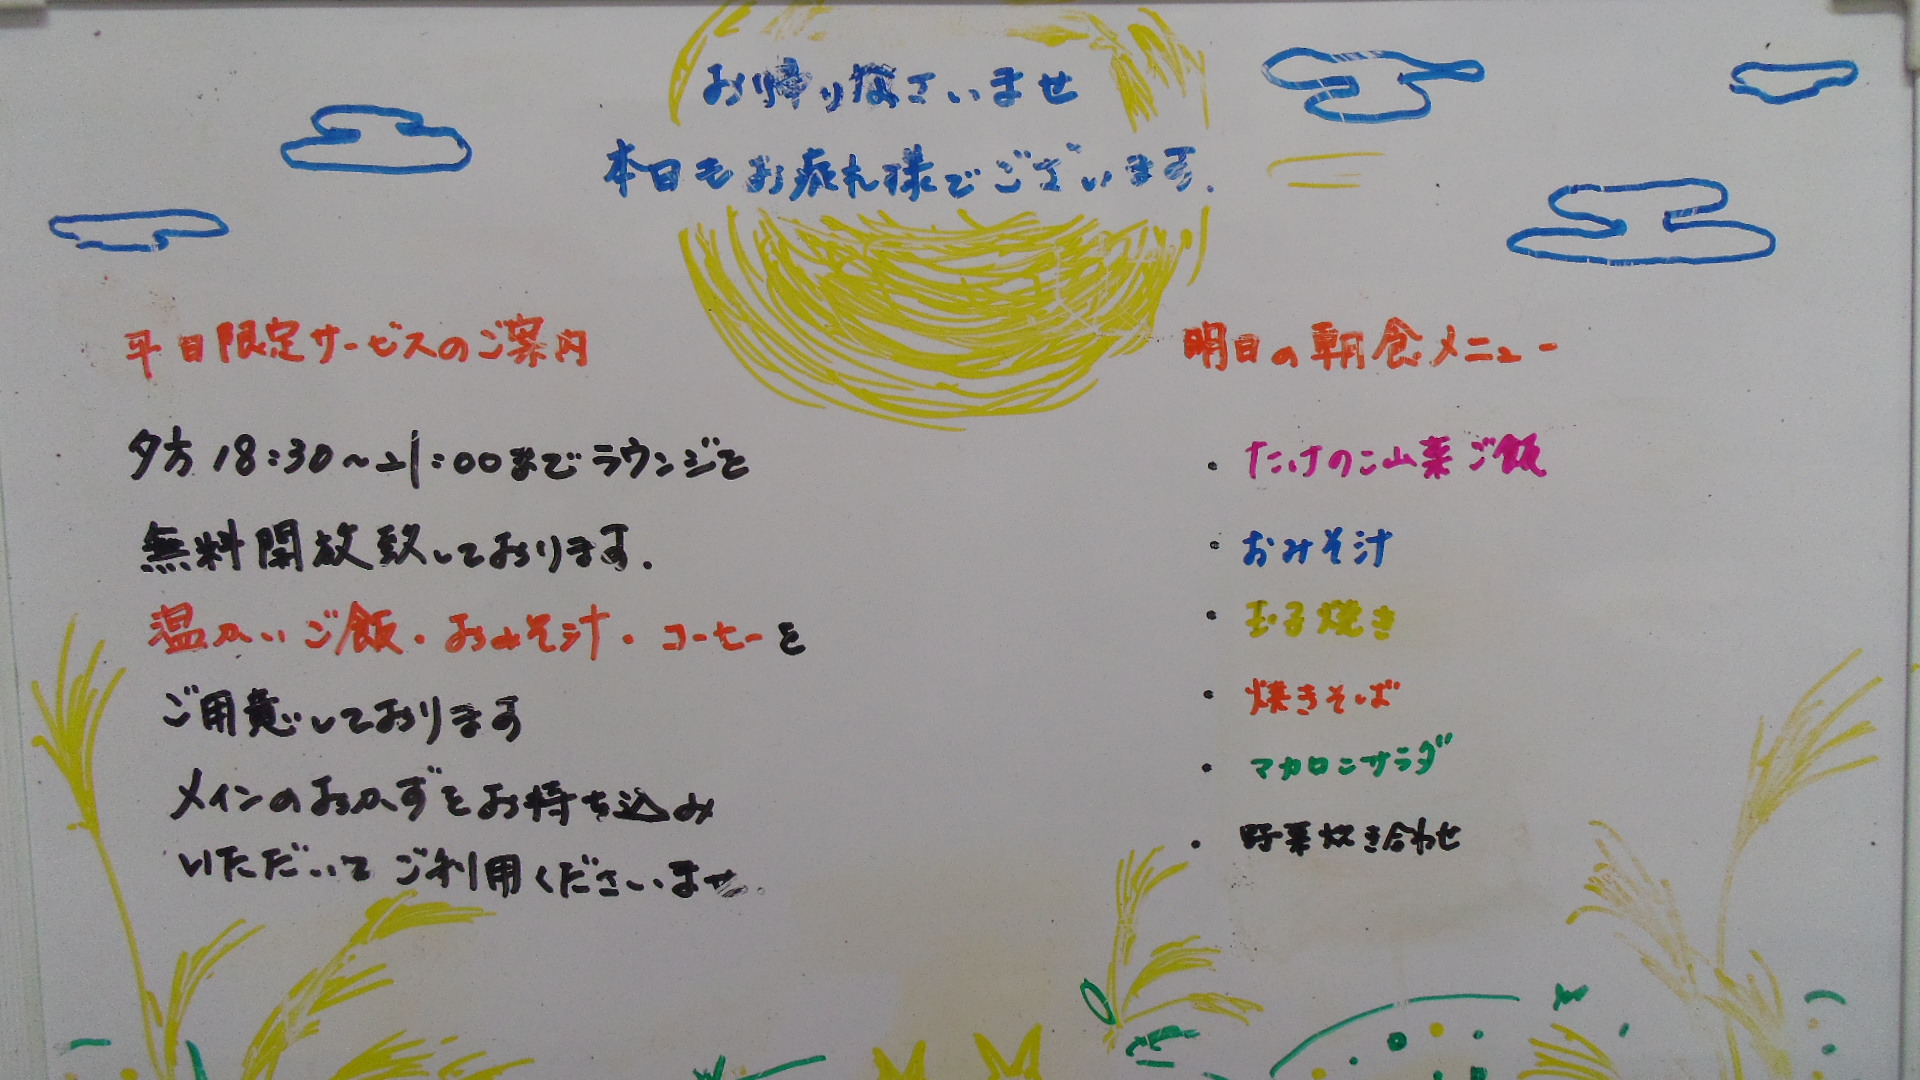 お帰り なさいませ
本日もお疲れ様でございます.
平日限定サービスのご案内
夕方 18:30～21:00までラウンジを
無料開放致しております.
温かいご飯・おみそ汁・コーヒーを
ご用意しております
メインのおかずをお持ち込み
いただいて ご利用くださいませ.
明日の朝食メニュー
・たけのこ山菜ご飯
・おみそ汁
・玉子焼き
・焼きそば
・マカロニサラダ
・野菜炊き合わせ